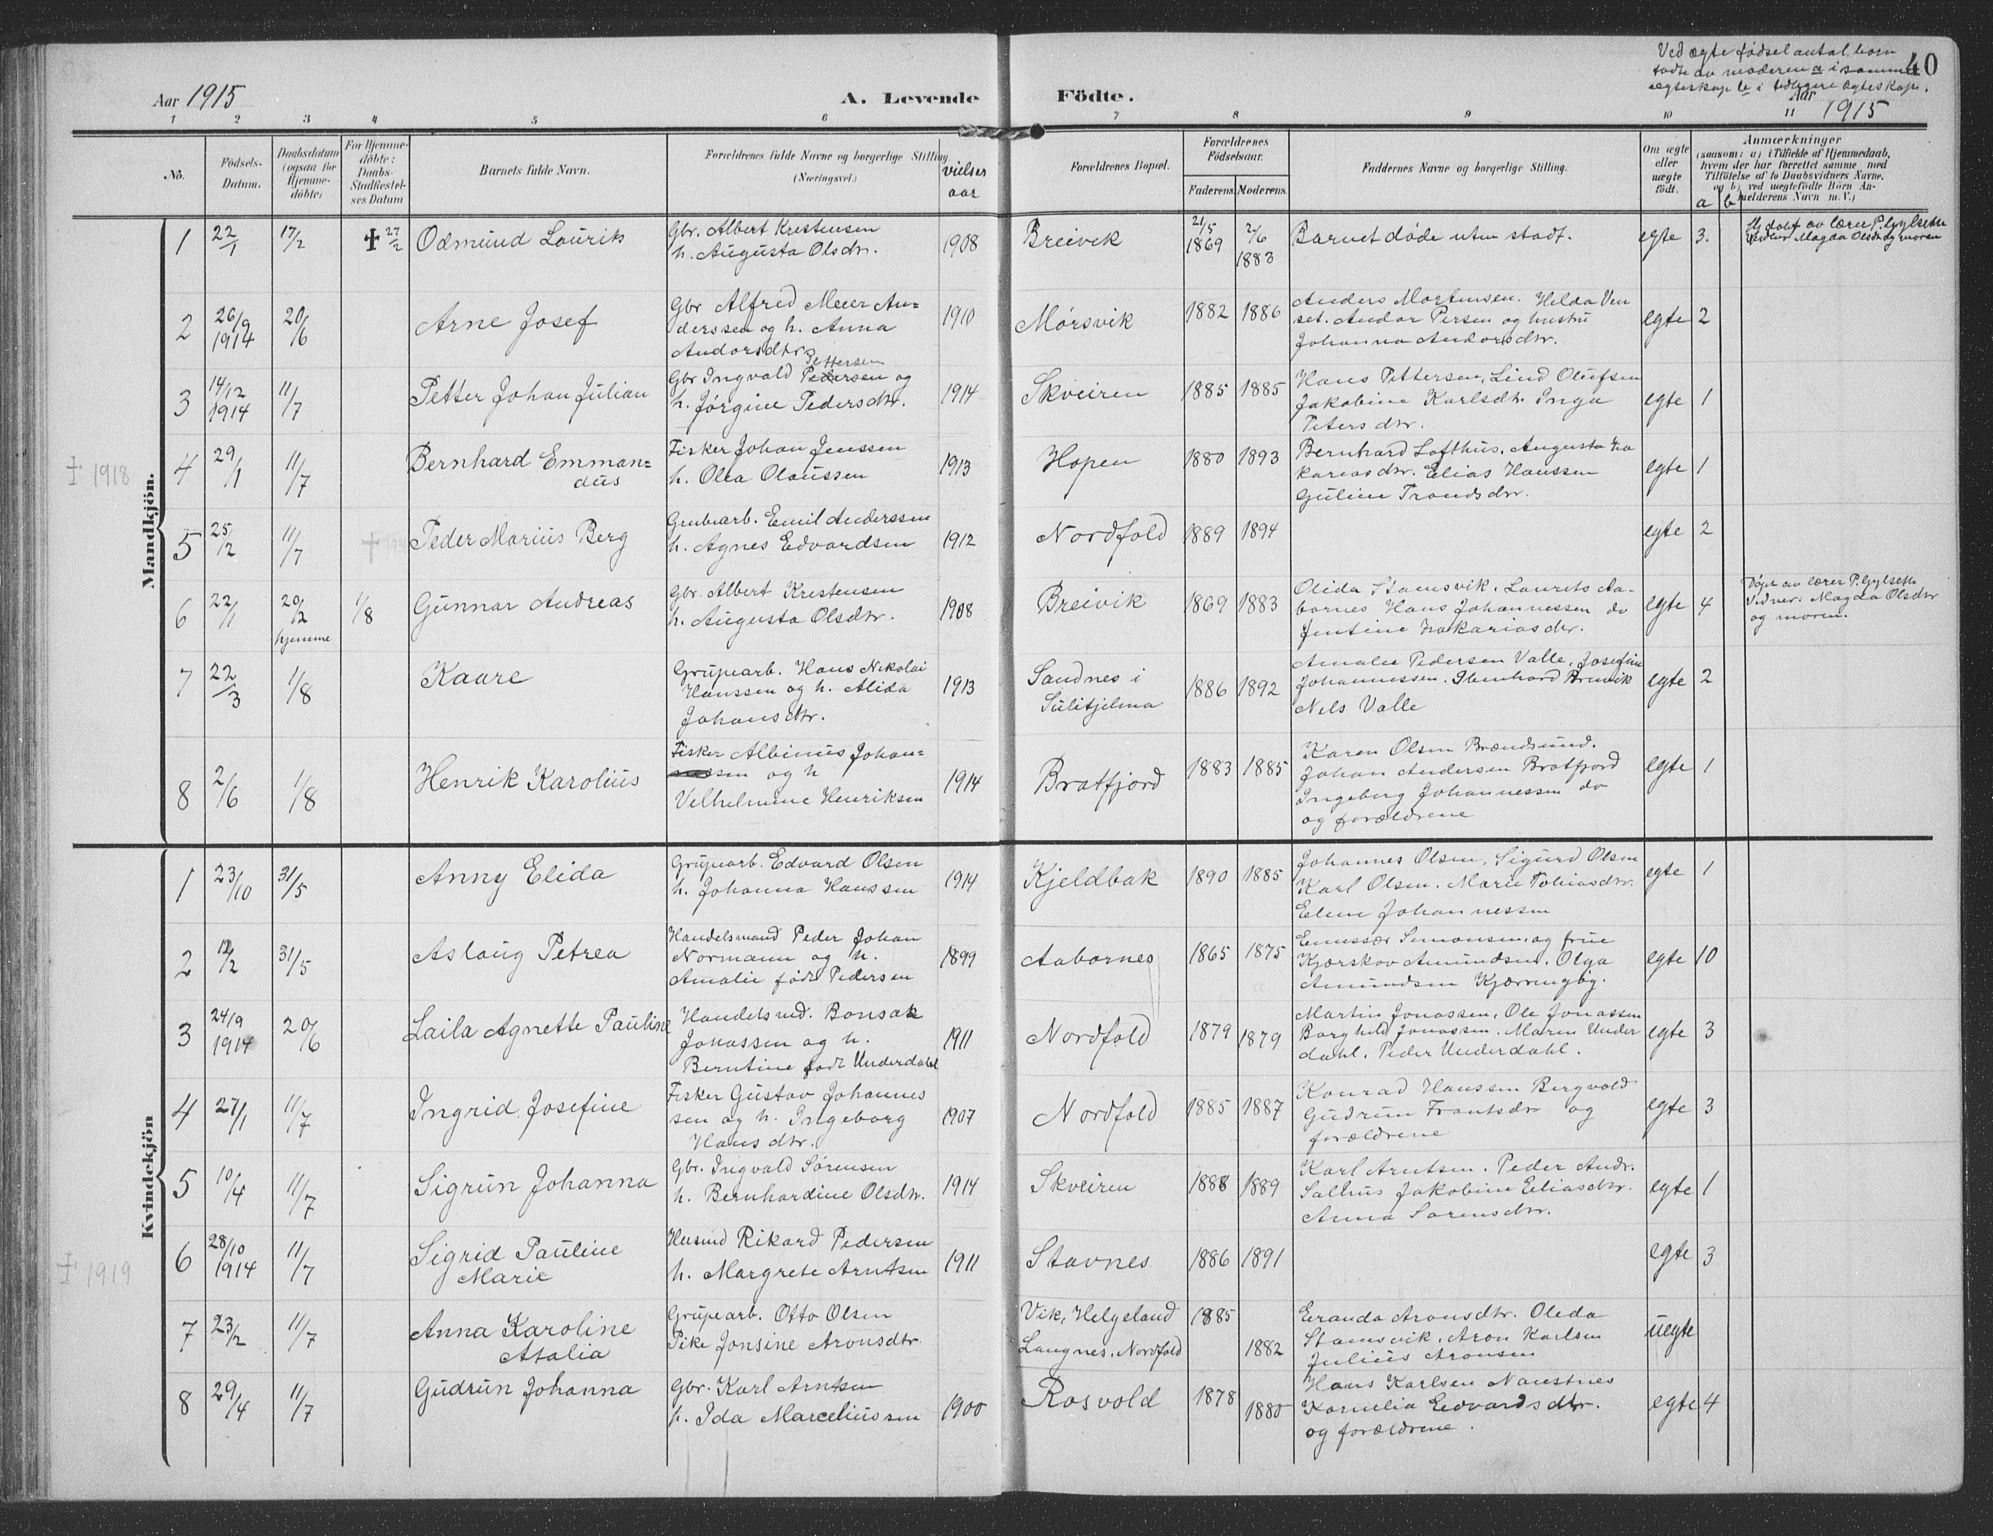 Aar 1915
A. Levende Födte.
Ved ægte födsel antal born
födte av moderen a i samme
ægteskap b i tidligere ægteskap.
40
Aar 1915
1 2 3 4 5 6 7 8 9 10 11
No.
Födsels-Datum.
Daabsdatum (ogsaa för Hjemmedöbte)
For Hjemmedöbte: Daabs-Stadfæstelses Datum
Barnets fulde Navn.
Forældrenes fulde Navne og borgerlige Stilling (Næringsvei.)
vielses aar
Forældrenes Bopæl.
Forældrenes Födselsaar.
Faderens. Moderens.
Faddernes Navne og borgerlige Stilling.
Om ægte eller uægte födt.
a b
Anmærkninger
(saasom: a) i Tilfælde af Hjemmedaab,
hvem der har forrettet samme, med
Tilföielse af to Daabsvidners Navne,
og b) ved uægtefödte Börn An-
melderens Navn m. V.)
Mandkjön.
1 22/1 17/2 ✝ 27/2 Odmund Laurik
Gbr. Albert Kristensen
h. Augusta Olsdtr.
1908 Breivik 21/5 1869 2/6 1883 Barnet döde uten stadf. egte 3.
Hj. döbt av lærer P. Gylseth
Magda Olsdtr og moren
2 26/9 1914 20/6 Arne Josef
Gbr Alfred Meier An-
derssen og h. Anna
Andorsdtr.
1910 Mørsvik 1882 1886
Anders Mortensen. Hilda Ven
set. Andor Persen og hustru
Johanna Andorsdtr.
egte 2
3 14/12 1914 11/7 Petter Johan Julian
Pettersen
Gbr Ingvald Pedersen og
h. Jørgine Pedersdtr.
1914 Skveiren 1885 1885
Hans Pettersen, Lind Olufsen
Jakobine Karlsdtr. Inga
Petersdtr.
egte 1
✝ 1918
4 29/1 11/7 Bernhard Emman-
dus
Fisker Johan Jenssen
h. Olea Olaussen
1913 Hopen 1880 1893
Bernhard Lofthus, Augusta Za
kariasdtr. Elias Hanssen
Guline Trondsdtr.
egte 1
5 25/2 11/7 ✝ Peder Marius Berg
Grubearb. Emil Anderssen
h. Agnes Edvardsen
1912 Nordfold 1889 1894 egte 2
6 22/1 20/2 hjemme 1/8 Gunnar Andreas
Gbr. Albert Kristensen
h. Augusta Olsdtr.
1908 Breivik 1869 1883
Olida Stamsvik, Laurits Aa-
bornes Hans Johannessen do
Jentine Zakariasdtr.
egte 4
Döpt av lærer P. Gylseth
Vidner. Magda Olsdtr
og moren.
7 22/3 1/8 Kaare
Grupearb. Hans Nikolai
Hanssen og h. Alida
Johansdtr.
1913 Sandnes i
Sulitjelma
1886 1892
Amalie Pedersen Valle, Josefine
Johannessen. Bernhard Breivik
Nils Valle
egte 2
8 2/6 1/8 Henrik Karolius
Fisker Albinus Johan-
sen og h
Velhelmine Henriksen
1914 Bratfjord 1883 1885
Karen Olsen Brændsund.
Johan Andersen Bratfjord
Ingeborg Johannessen do
og forældrene
egte 1
Kvindekjön
1 23/10 31/5 Anny Elida
Grupearb. Edvard Olsen
h. Johanna Hanssen
1914 Kjeldbak 1890 1885
Johannes Olsen, Sigurd Olsen
Karl Olsen. Marie Tobiasdtr.
Eline Johannessen
egte 1
2 12/2 31/5 Aslaug Petrea
Handelsmand Peder Johan
Normann og h.
Amalie född Pedersen
1899 Aabornes 1865 1875
Emissær Simonsen og frue
Kjærskov Amundsen. Olga
Amundsen Kjærringöy.
egte 10
3 24/9 1914 20/6 Laila Agnette Pauline
Handelsmd. Bonsak
Jonassen og h.
Berntine född Underdahl
1911 Nordfold 1879 1879
Martin Jonassen, Ole Jonassen
Borghild Jonassen. Maren Under
dahl. Peder Underdahl.
egte 3
4 27/1 11/7 Ingrid Josefine
Fisker Gustav Johannes
sen og h. Ingeborg
Hansdtr.
1907 Nordfold 1885 1887
Konrad Hanssen Bergvold
Gudrun Frantsdtr og
forældrene
egte 3
5 10/4 11/7 Sigrun Johanna
Gbr. Ingvald Sørensen
h. Bernhardine Olsdtr.
1914 Skveiren 1888 1889
Karl Arntsen. Peder Andr.
Salhus Jakobine Eliasdtr.
Anna Sørensdtr.
egte 1
✝ 1919
6 28/10 1914 11/7 Sigrid Pauline
Marie
Husmd Rikard Pedersen
h. Margrete Arntsen
1911 Stavnes 1886 1891 egte 3
7 23/2 11/7 Anna Karoline
Atalia
Grupearb. Otto Olsen
Pike Jonsine Aronsdtr
Vik, Helgeland
Langnes, Nordfold
1885 1882
Eranda Aronsdtr. Oleda
Stamsvik, Aron Karlsen
Julius Aronsen
uegte
8 29/4 11/7 Gudrun Johanna
Gbr. Karl Arntsen
h. Ida Marceliussen
1900 Rosvold 1878 1880
Hans Karlsen Naustnes
Kornelia Edvardsdtr.
og forældrene.
egte 4